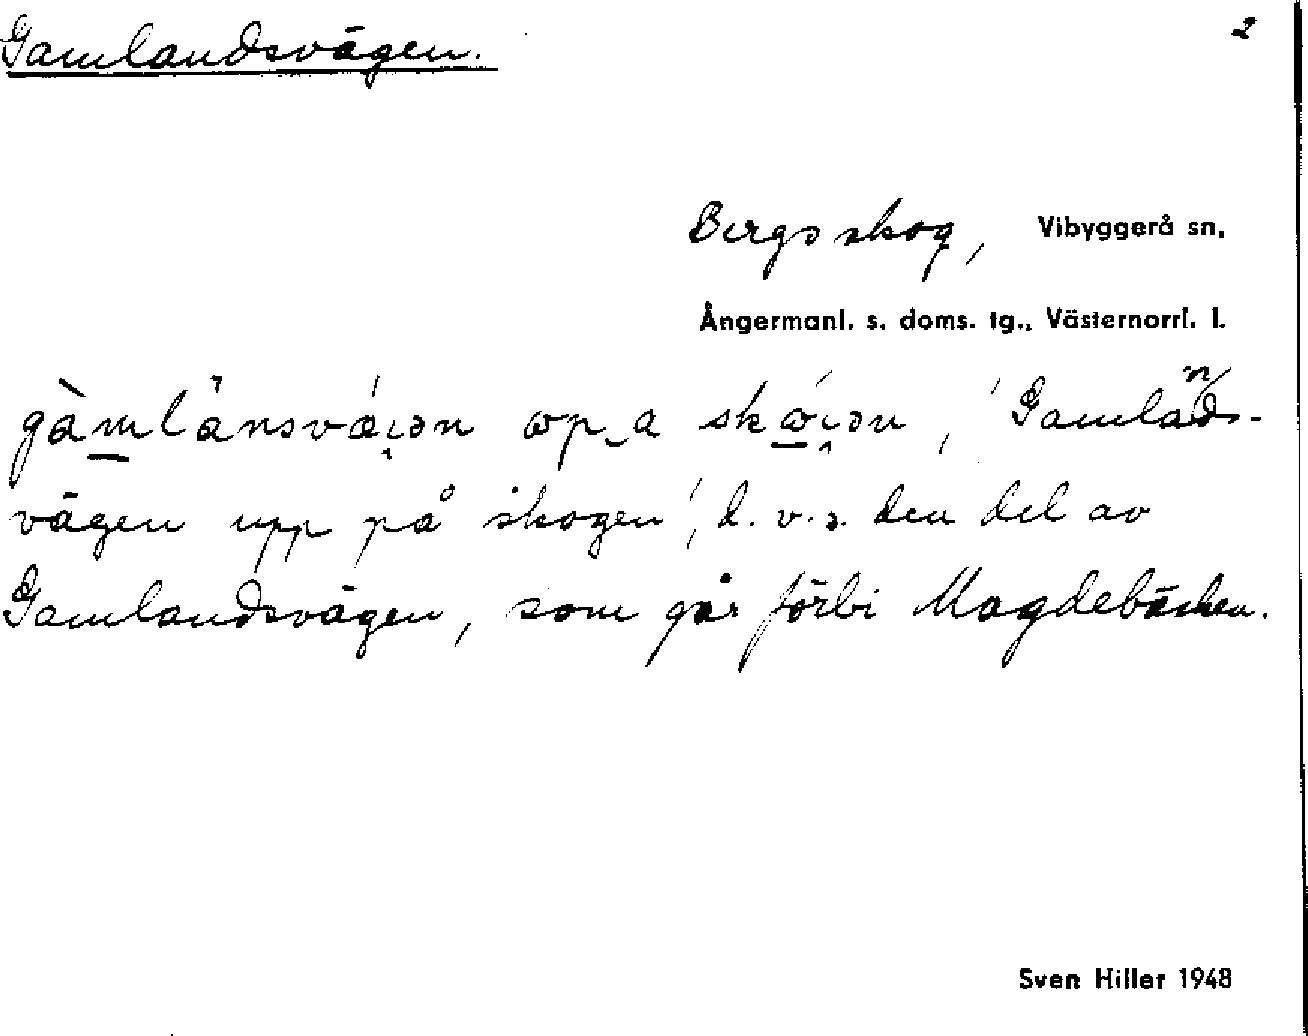 Gamlandsvägen. 2
Bergs skog, Vibyggerå sn.
Ångermanl. s. doms. tg., Västernorrl. l.
'Gamlands-
vägen upp på skogen', d.v.s. den del av
Gamlandsvägen, som går förbi Magdebäcken.
Sven Hiller 1948